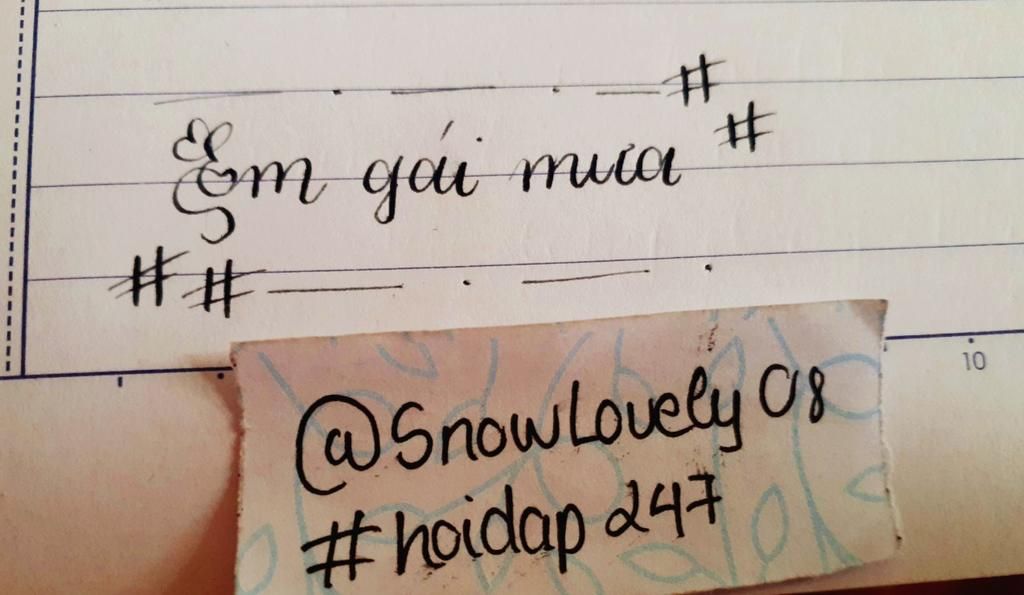 #
#
Em gái mưa
# #
10
@SnowLovely08
#hoidap247